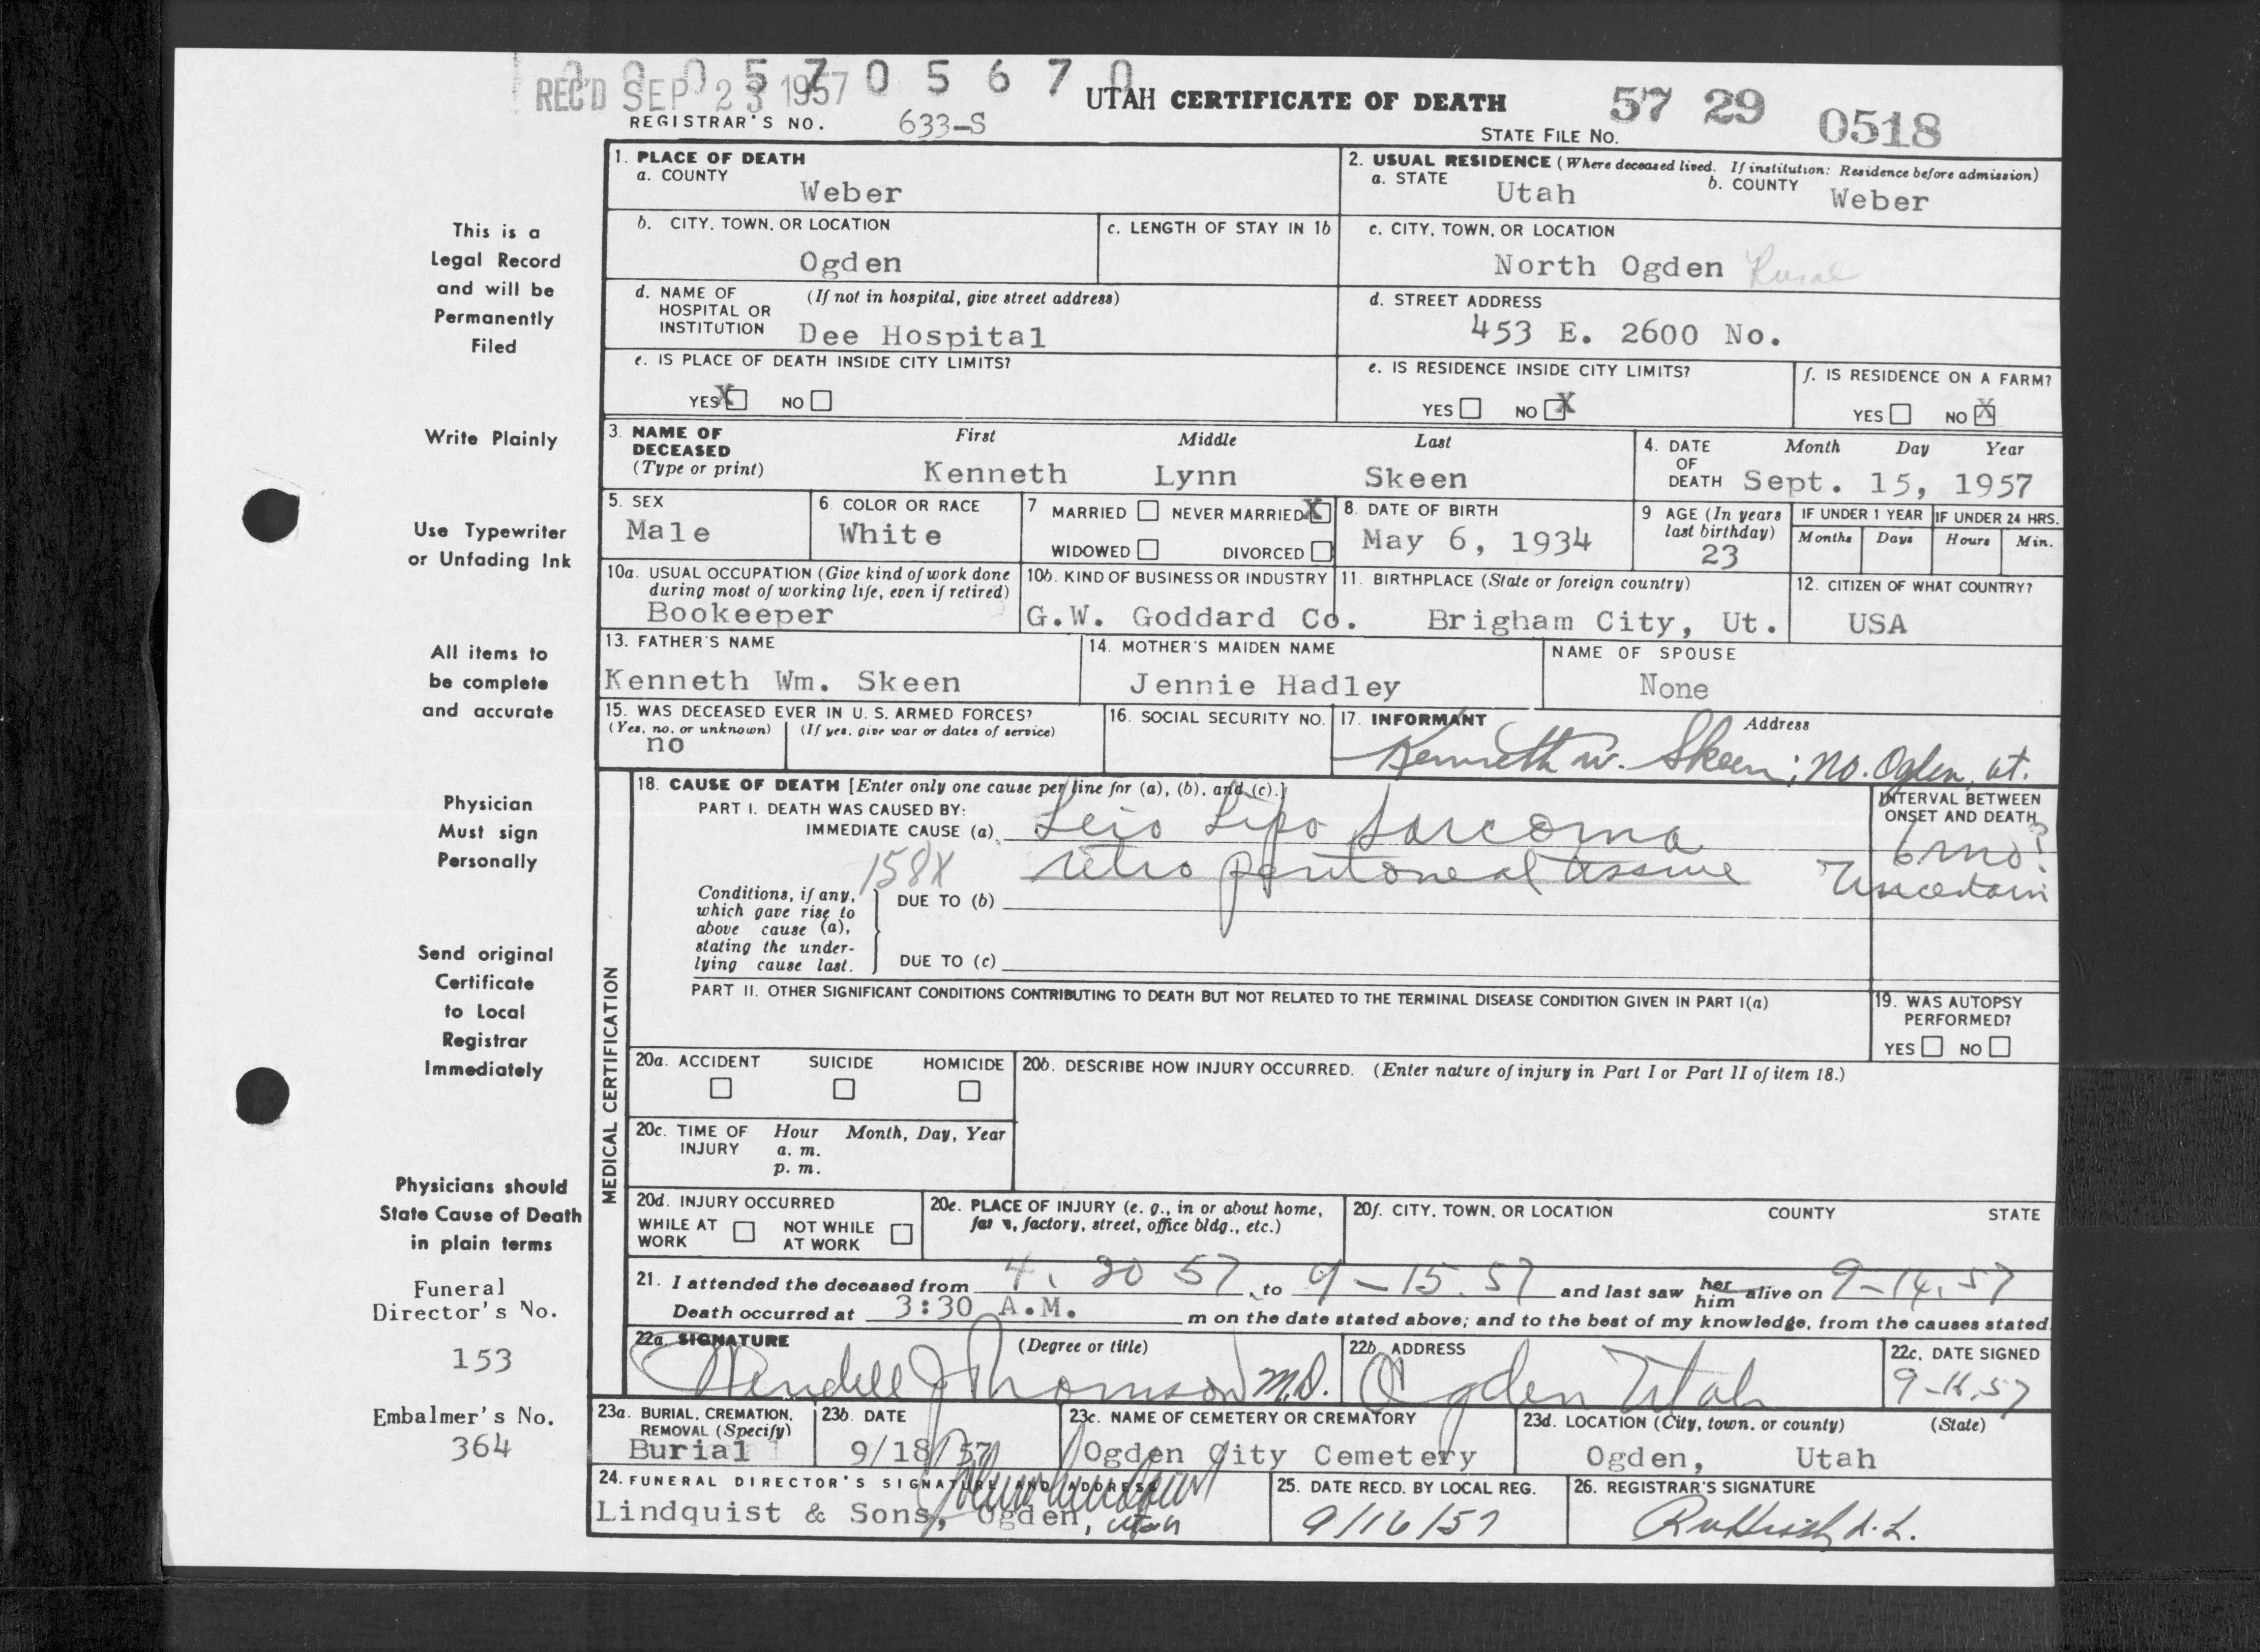 0 0 0 5 7 0 5 6 7 0
REC'D SEP 23 1957
UTAH CERTIFICATE OF DEATH
REGISTRAR'S NO. 633-S
STATE FILE NO. 57 29 0518
This is a
Legal Record
and will be
Permanently
Filed
Write Plainly
Use Typewriter
or Unfading Ink
All items to
be complete
and accurate
Physician
Must sign
Personally
Send original
Certificate
to Local
Registrar
Immediately
Physicians should
State Cause of Death
in plain terms
Funeral
Director's No.
153
Embalmer's No.
364
1. PLACE OF DEATH
a. COUNTY
Weber
2. USUAL RESIDENCE (Where deceased lived. If institution: Residence before admission)
a. STATE Utah b. COUNTY Weber
b. CITY, TOWN, OR LOCATION
Ogden
c. LENGTH OF STAY IN 1b
c. CITY, TOWN, OR LOCATION
North Ogden Rural
d. NAME OF HOSPITAL OR INSTITUTION (If not in hospital, give street address)
Dee Hospital
d. STREET ADDRESS
453 E. 2600 No.
e. IS PLACE OF DEATH INSIDE CITY LIMITS?
YES X NO
e. IS RESIDENCE INSIDE CITY LIMITS?
YES NO X
f. IS RESIDENCE ON A FARM?
YES NO X
3. NAME OF DECEASED (Type or print)
First Middle Last
Kenneth Lynn Skeen
4. DATE OF DEATH Month Day Year
Sept. 15, 1957
5. SEX
Male
6 COLOR OR RACE
White
7 MARRIED NEVER MARRIED X
WIDOWED DIVORCED
8. DATE OF BIRTH
May 6, 1934
9 AGE (In years last birthday)
23
IF UNDER 1 YEAR IF UNDER 24 HRS.
Months Days Hours Min.
10a. USUAL OCCUPATION (Give kind of work done during most of working life, even if retired)
Bookeeper
10b. KIND OF BUSINESS OR INDUSTRY
G.W. Goddard Co.
11. BIRTHPLACE (State or foreign country)
Brigham City, Ut.
12. CITIZEN OF WHAT COUNTRY?
USA
13. FATHER'S NAME
Kenneth Wm. Skeen
14. MOTHER'S MAIDEN NAME
Jennie Hadley
NAME OF SPOUSE
None
15. WAS DECEASED EVER IN U. S. ARMED FORCES?
(Yes, no, or unknown) (If yes, give war or dates of service)
no
16. SOCIAL SECURITY NO.
17. INFORMANT Address
Kenneth W. Skeen; No. Ogden, Ut.
MEDICAL CERTIFICATION
18. CAUSE OF DEATH [Enter only one cause per line for (a), (b), and (c).]
INTERVAL BETWEEN ONSET AND DEATH
PART I. DEATH WAS CAUSED BY:
IMMEDIATE CAUSE (a) Leio Lipo Sarcoma 6 mo?
158X retro peritoneal tissue Uncertain
Conditions, if any, which gave rise to above cause (a), stating the underlying cause last.
DUE TO (b)
DUE TO (c)
PART II. OTHER SIGNIFICANT CONDITIONS CONTRIBUTING TO DEATH BUT NOT RELATED TO THE TERMINAL DISEASE CONDITION GIVEN IN PART I(a)
19. WAS AUTOPSY PERFORMED?
YES NO
20a. ACCIDENT SUICIDE HOMICIDE
20b. DESCRIBE HOW INJURY OCCURRED. (Enter nature of injury in Part I or Part II of item 18.)
20c. TIME OF INJURY Hour Month, Day, Year
a. m.
p. m.
20d. INJURY OCCURRED
WHILE AT WORK NOT WHILE AT WORK
20e. PLACE OF INJURY (e. g., in or about home, farm, factory, street, office bldg., etc.)
20f. CITY, TOWN, OR LOCATION COUNTY STATE
21. I attended the deceased from 4. 20 57, to 9-15.57 and last saw her him alive on 9-14.57
Death occurred at 3:30 A.M. m on the date stated above; and to the best of my knowledge, from the causes stated
22a. SIGNATURE (Degree or title)
Wendell J Thomson M.D.
22b. ADDRESS
Ogden Utah
22c. DATE SIGNED
9-16.57
23a. BURIAL, CREMATION, REMOVAL (Specify)
Burial
23b. DATE
9/18/57
23c. NAME OF CEMETERY OR CREMATORY
Ogden City Cemetery
23d. LOCATION (City, town, or county) (State)
Ogden, Utah
24. FUNERAL DIRECTOR'S SIGNATURE AND ADDRESS
Lindquist & Sons, Ogden, Utah
25. DATE RECD. BY LOCAL REG.
9/16/57
26. REGISTRAR'S SIGNATURE